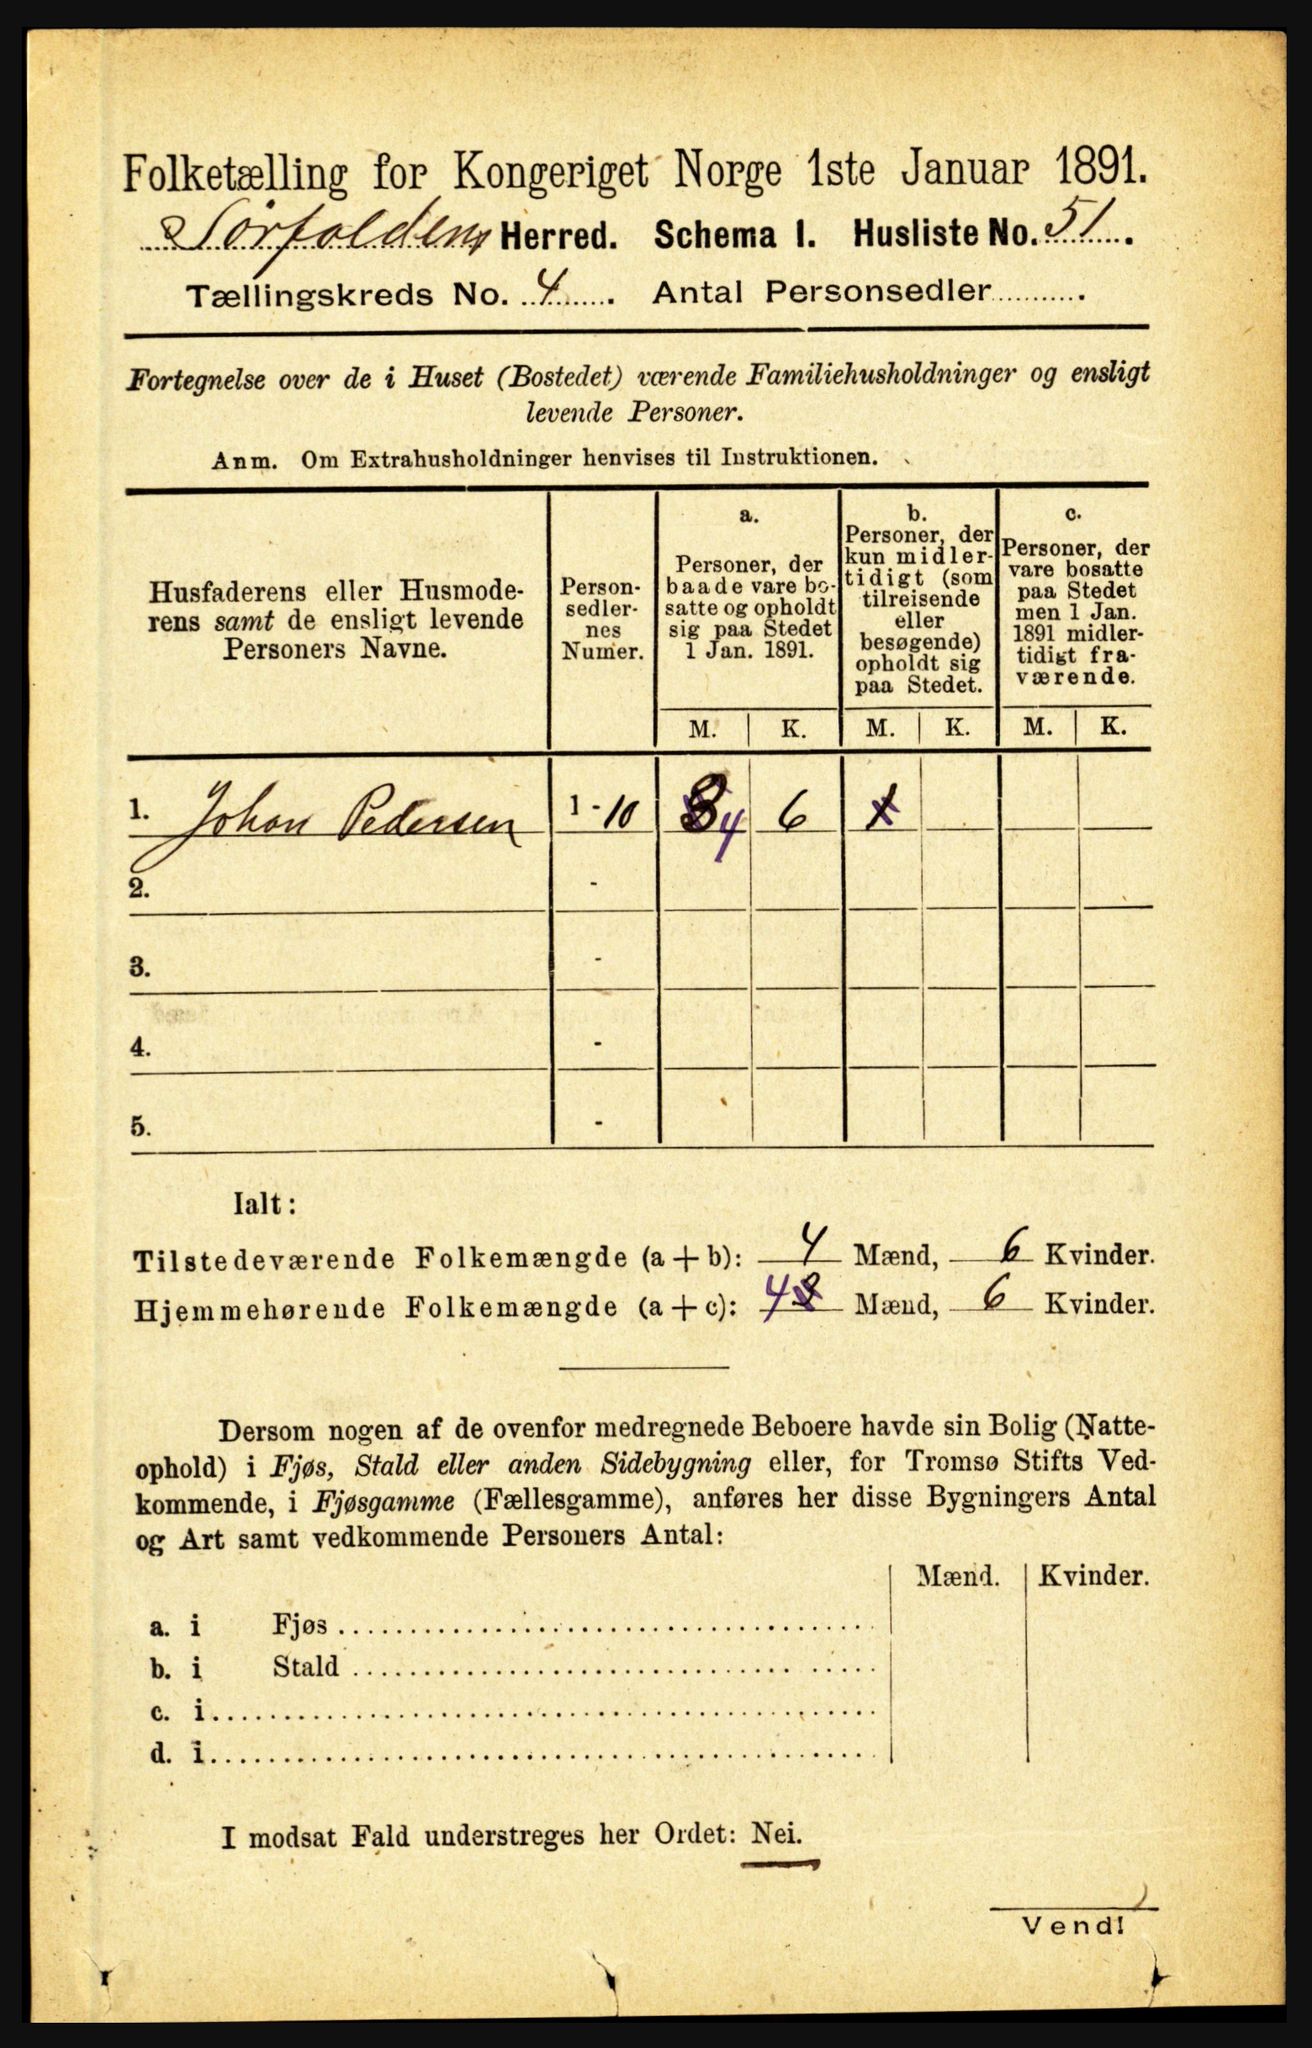 Folketælling for Kongeriget Norge 1ste Januar 1891.
Sørfoldens Herred. Schema 1. Husliste No. 51.
Tællingskreds No. 4. Antal Personsedler .
Fortegnelse over de i Huset (Bostedet) værende Familiehusholdninger og ensligt
levende Personer.
Anm. Om Extrahusholdninger henvises til Instruktionen.
Husfaderens eller Husmode-
rens samt de ensligt levende
Personers Navne.
Person-
sedler-
nes
Numer.
a.
Personer, der
baade vare bo-
satte og opholdt
sig paa Stedet
1 Jan. 1891.
b.
Personer, der
kun midler-
tidigt (som
tilreisende
eller
besøgende)
opholdt sig
paa Stedet.
c.
Personer, der
vare bosatte
paa Stedet
men 1 Jan.
1891 midler-
tidigt fra-
værende.
M. K. M. K. M. K.
1. Johan Pedersen 1-10 3 4 6 1
2. -
3. -
4. -
5. -
Ialt:
Tilstedeværende Folkemængde (a + b): 4 Mænd, 6 Kvinder.
Hjemmehørende Folkemængde (a + c): 4 3 Mænd, 6 Kvinder.
Dersom nogen af de ovenfor medregnede Beboere havde sin Bolig (Natte-
ophold) i Fjøs, Stald eller anden Sidebygning eller, for Tromsø Stifts Ved-
kommende, i Fjøsgamme (Fællesgamme), anføres her disse Bygningers Antal
og Art samt vedkommende Personers Antal:
Mænd. Kvinder.
a. i Fjøs
b. i Stald
c. i
d. i
I modsat Fald understreges her Ordet: Nei.
Vend!